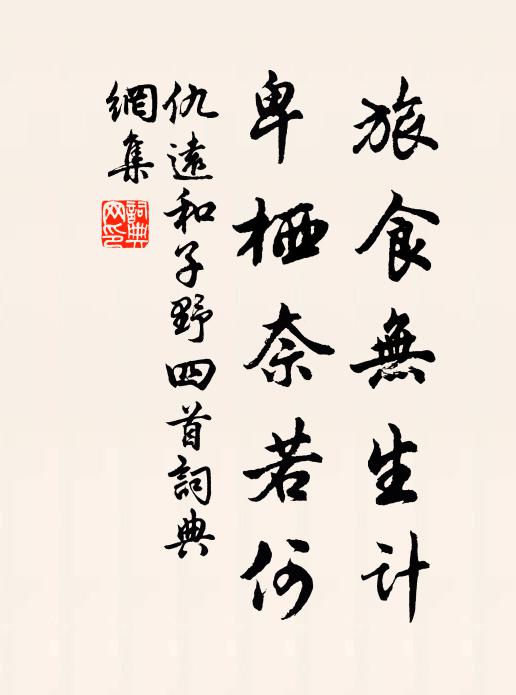 旅食無生計
卑栖奈若何
仇遠和子野四首詞典
網集
詞典網印